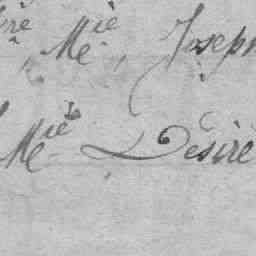 Mie, Joseph
Mie Désiré